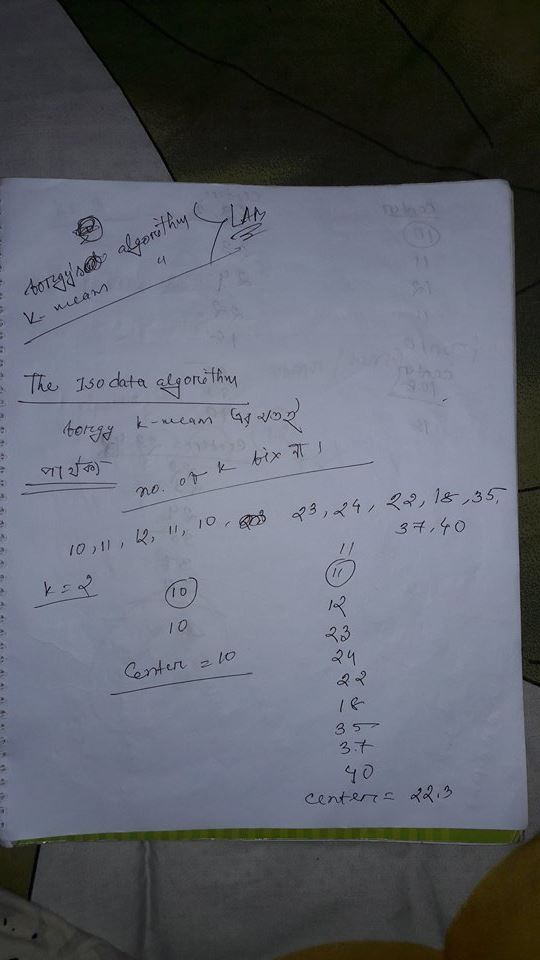 algorithm
K-mean "
LAM
The Isodata algorithm
k-mean এর মতই
পার্থক্য no. of k fix না।
10, 11, 12, 11, 10, 23, 24, 22, 18, 35,
37, 40
k = 2
10
10
Center = 10
11
11
12
23
24
22
18
35
37
40
Center = 22.3